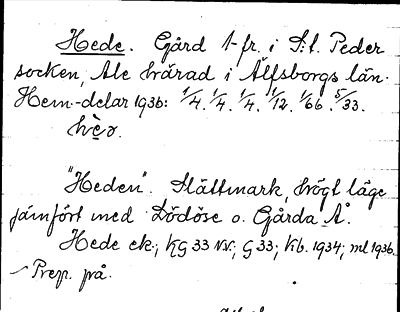 Hede. Gård 1-fr. i S:t. Peder
socken, Ale härad i Älfsborgs län.
Hem-delar 1936: 1/4. 1/4. 1/4. 1/12. 1/66. 5/33.
"Heden". Slättmark, högt läge
jämfört med Lödöse o. Gårda Å.
Hede ek., KG 33 NV.; G 33; Kb. 1934; ml 1936.
Prep. på.